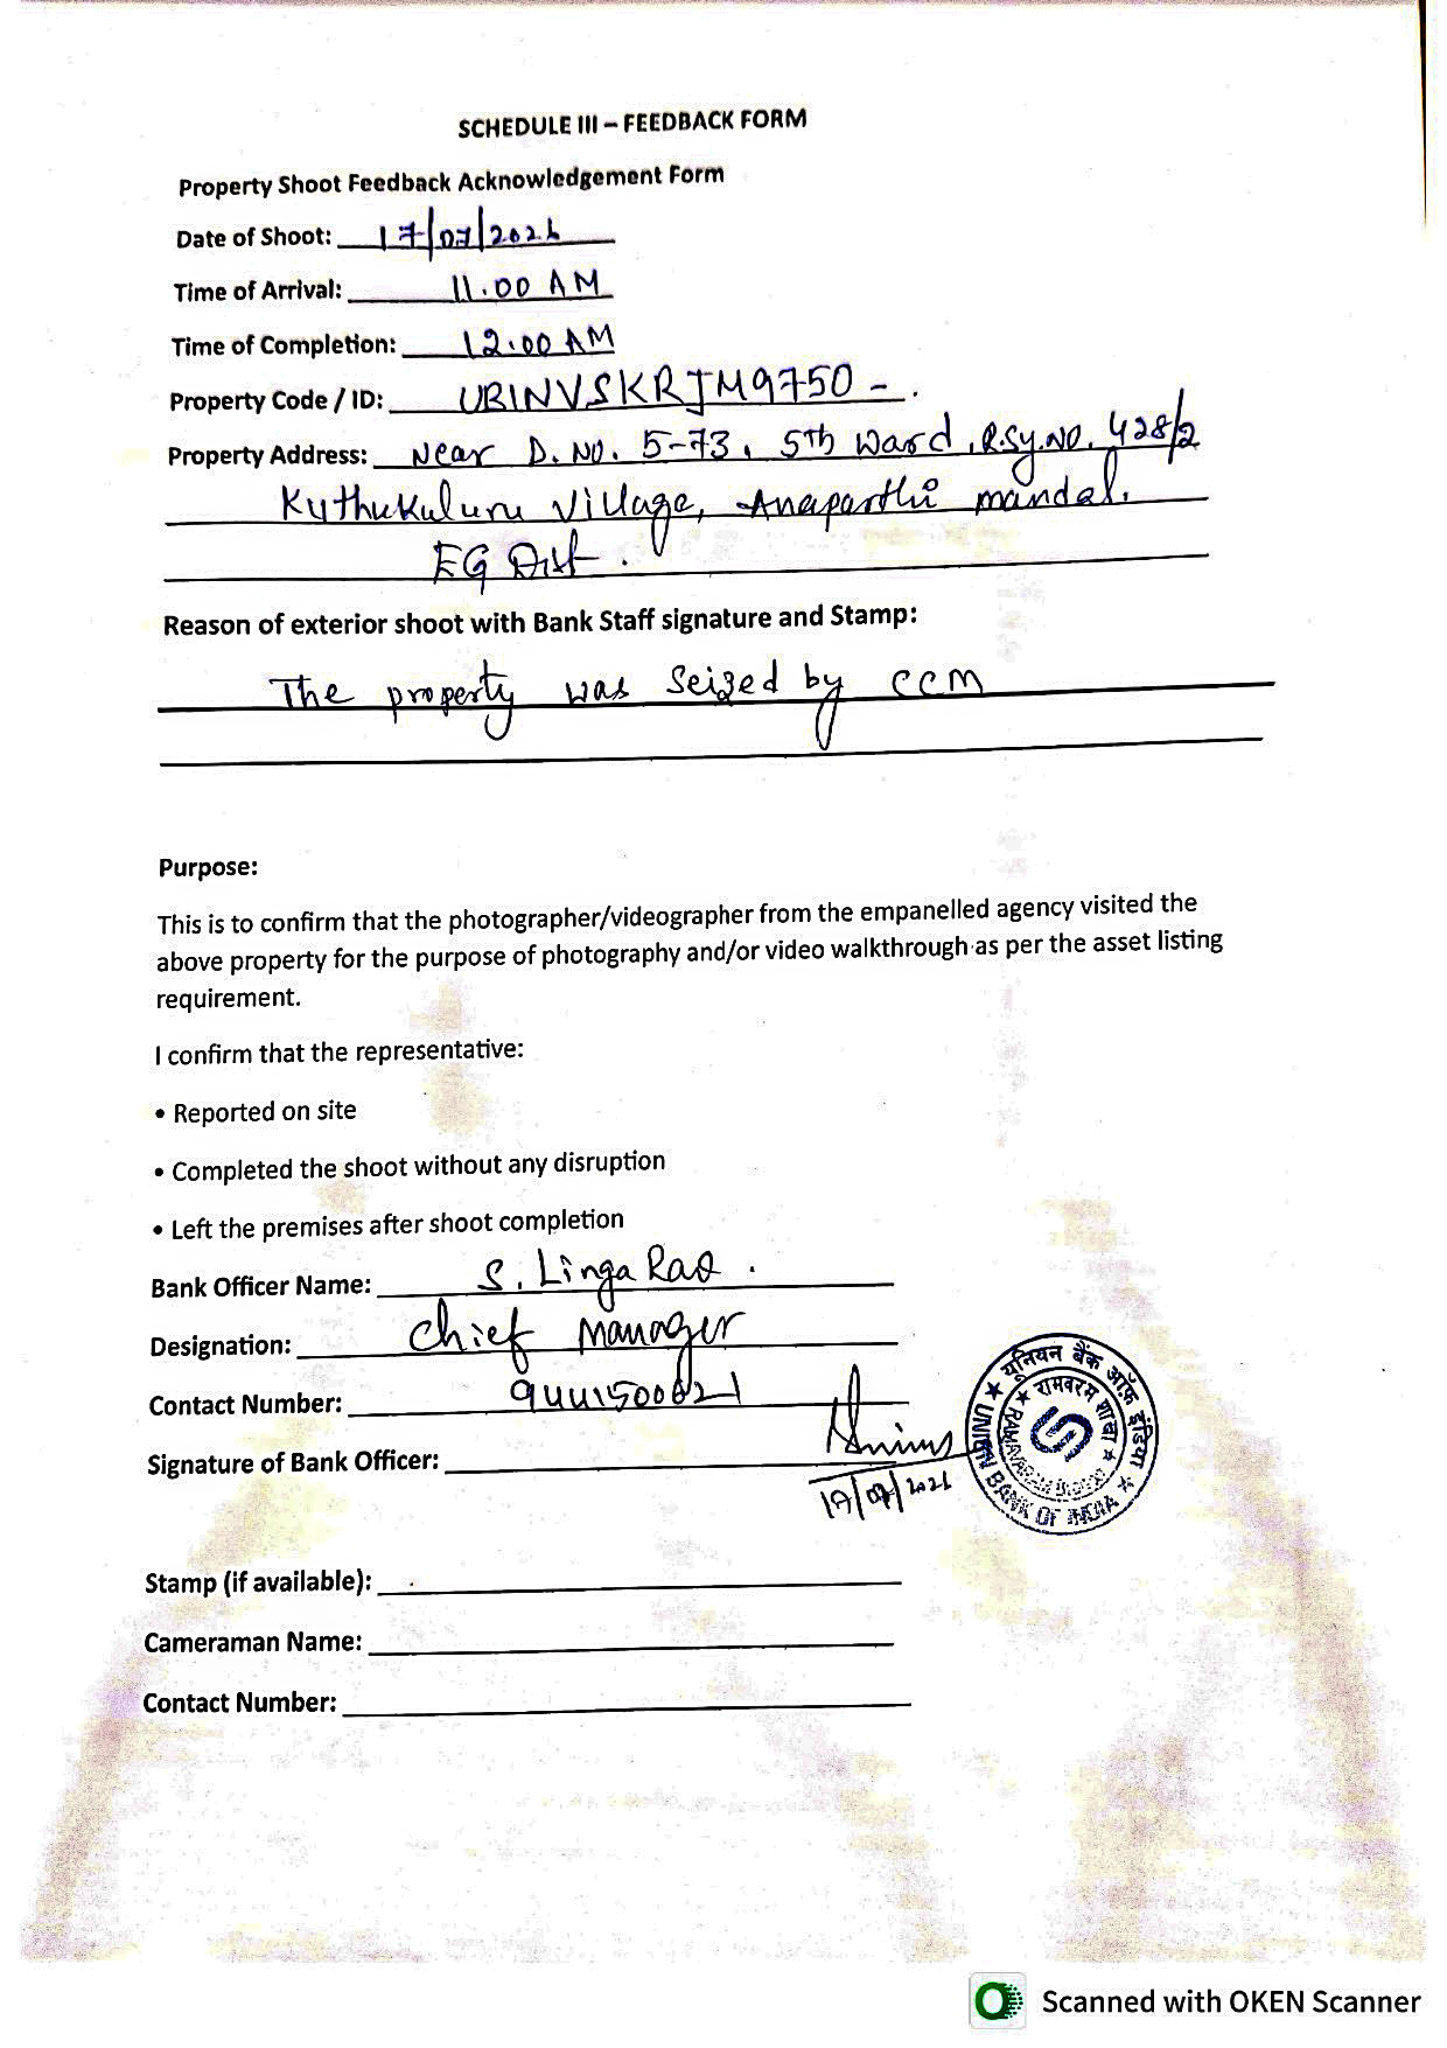 SCHEDULE III – FEEDBACK FORM
Property Shoot Feedback Acknowledgement Form
Date of Shoot: 17/07/2026
Time of Arrival: 11.00 AM
Time of Completion: 12.00 AM
Property Code / ID: UBINVSKRJM9750 -.
Property Address: Near D. NO. 5-73, 5th Ward, R.Sy.NO. 428/2
Kuthukuluru Village, Anaparthi mandal.
EG Dist.
Reason of exterior shoot with Bank Staff signature and Stamp:
The property was Seized by CCM
Purpose:
This is to confirm that the photographer/videographer from the empanelled agency visited the
above property for the purpose of photography and/or video walkthrough as per the asset listing
requirement.
I confirm that the representative:
• Reported on site
• Completed the shoot without any disruption
• Left the premises after shoot completion
Bank Officer Name: S. Linga Rao.
Designation: Chief Manager
Contact Number:
Signature of Bank Officer:
यूनियन बैंक ऑफ़ इंडिया
UNION BANK OF INDIA
रामवरम शाखा
Stamp (if available):
Cameraman Name:
Contact Number:
Scanned with OKEN Scanner